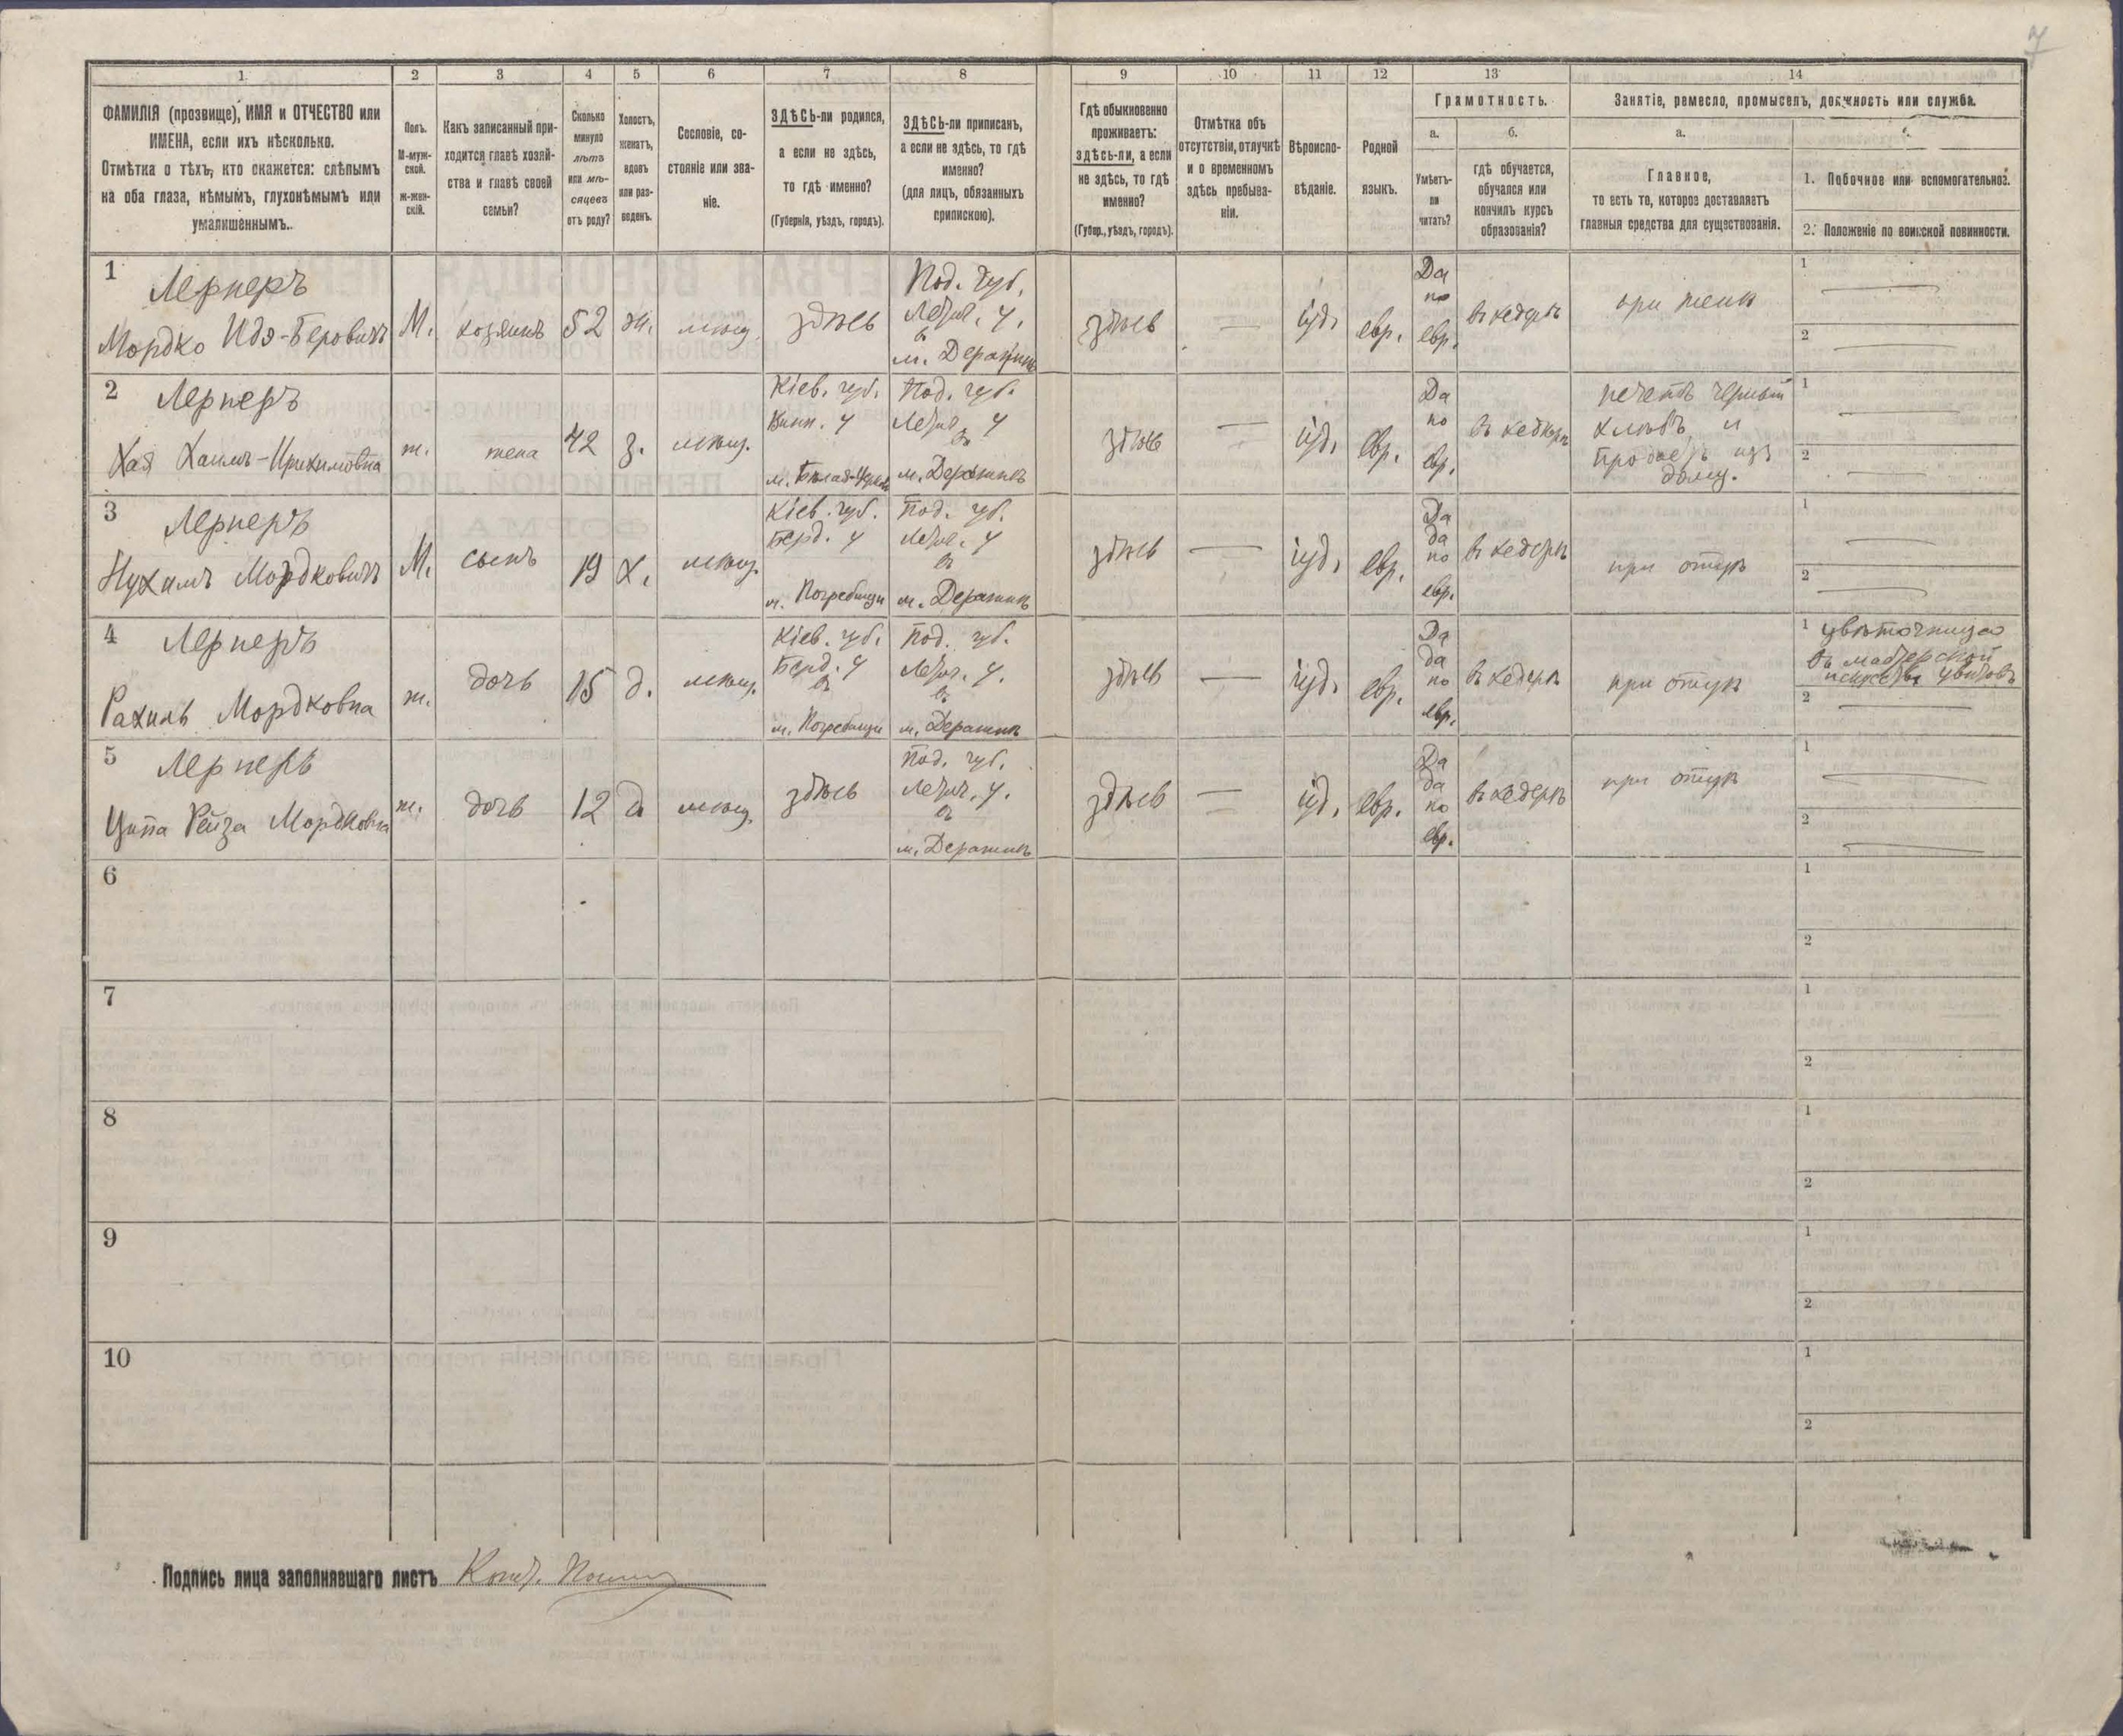 7
1
2
3
4
5
6
7
8
9
10
11
12
13
14
ФАМИЛІЯ (прозвище), ИМЯ и ОТЧЕСТВО или
ИМЕНА, если ихъ нѣсколько.
Отмѣтка о тѣхъ, кто окажется: слѣпымъ
на оба глаза, нѣмымъ, глухонѣмымъ или
умалишеннымъ.
Полъ.
М-муж-
ской.
ж-жен-
скій.
Какъ записанный при-
ходится главѣ хозяй-
ства и главѣ своей
семьи?
Сколько
минуло
лѣтъ
или мѣ-
сяцевъ
отъ роду?
Холостъ,
женатъ,
вдовъ
или раз-
веденъ.
Сословіе, со-
стояніе или зва-
ніе.
ЗДѢСЬ-ли родился,
а если не здѣсь,
то гдѣ именно?
(Губернія, уѣздъ, городъ).
ЗДѢСЬ-ли приписанъ,
а если не здѣсь, то гдѣ
именно?
(для лицъ, обязанныхъ
припискою).
Гдѣ обыкновенно
проживаетъ:
здѣсь-ли, а если
не здѣсь, то гдѣ
именно?
(Губер., уѣздъ, городъ).
Отмѣтка объ
отсутствіи, отлучкѣ
и о временномъ
здѣсь пребыва-
ніи.
Вѣроиспо-
вѣданіе.
Родной
языкъ.
Грамотность.
а.
б.
Умѣетъ-
ли
читать?
гдѣ обучается,
обучался или
кончилъ курсъ
образованія?
Занятіе, ремесло, промыселъ, должность или служба.
а.
Главное,
то есть то, которое доставляетъ
главныя средства для существованія.
1. Побочное или вспомогательное.
2. Положеніе по воинской повинности.
1
Лернеръ
Мордко Идэ-Беровичъ
М.
хозяинъ
52
ж.
мѣщ.
здѣсь
Под. губ.
Летич. у.
в
м. Деражнѣ
здѣсь
—
іуд.
евр.
Да
по
евр.
въ хедерѣ
при женѣ
1
2
2
Лернеръ
Хая Хаимъ-
ж.
жена
42
з.
мѣщ.
Кіев. губ.
у
м. Бѣлая-Церковь
Под. губ.
Летич. у
въ
м. Деражнѣ
здѣсь
—
іуд.
евр.
Да
по
евр.
въ хедерѣ
печетъ черный
хлѣбъ и
продаетъ изъ
дому.
1
2
3
Лернеръ
Нухимъ Мордковичъ
М.
сынъ
19
х.
мѣщ.
Кіев. губ.
Берд. у
м. Погребищи
Под. губ.
Летич. у
въ
м. Деражнѣ
здѣсь
—
іуд.
евр.
Да
да
по
евр.
въ хедерѣ
при отцѣ
1
2
4
Лернеръ
Рахиль Мордковна
ж.
дочь
15
д.
мѣщ.
Кіев. губ.
Берд. у
въ
м. Погребищи
Под. губ.
Летич. у.
въ
м. Деражнѣ
здѣсь
—
іуд.
евр.
Да
да
по
евр.
въ хедерѣ
при отцѣ
1 цвѣточница
въ мастерской
цвѣтовъ
2
5
Лернеръ
Ципа Рейза Мордковна
ж.
дочь
12
д
мѣщ.
здѣсь
Под. губ.
Летич. у.
въ
м. Деражнѣ
здѣсь
—
іуд.
евр.
Да
да
по
евр.
въ хедерѣ
при отцѣ
1
2
6
1
2
7
1
2
8
1
2
9
1
2
10
1
2
Подпись лица заполнявшаго листъ